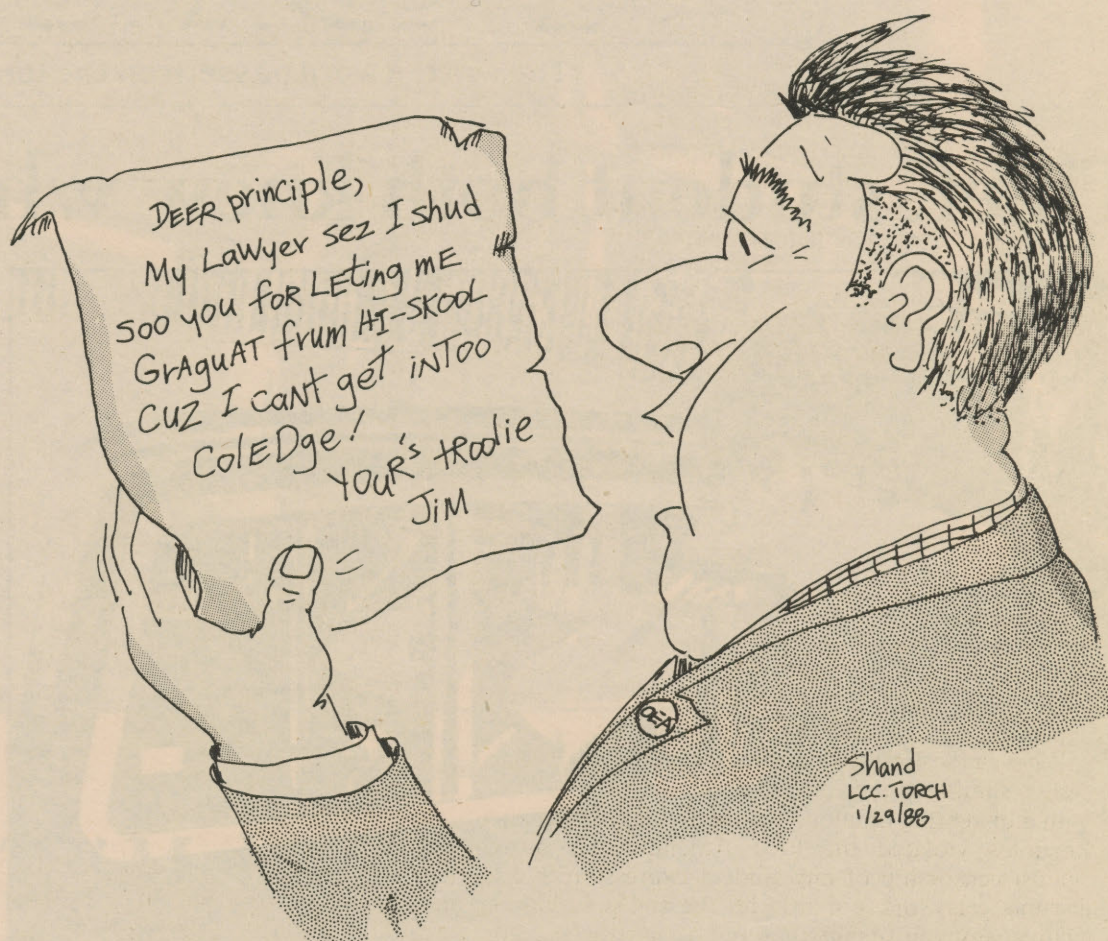 DEER principle,
My LaWyer sez I shud
soo you foR LEting mE
GrAguAT frum HI-SKOOL
CUZ I caNt get iNTOO
ColEDge!
YOUR's tRoolie
JiM
OEA
Shand
LCC. TORCH
1/29/88